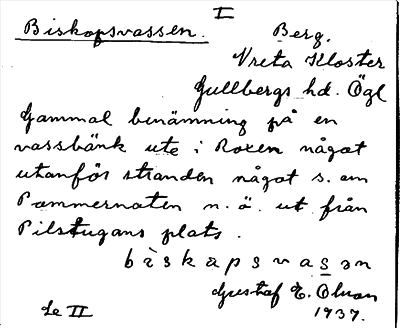 I
Biskopsvassen. Berg.
Vreta Kloster
Gullbergs hd. Ögl
Gammal benämning på en
vassbänk ute i Roxen något
utanför stranden något s. om
Pommernaten n. ö. ut från
Pilstugans plats.
bìskàpsvasən
Gustaf E. Olson
Se II 1937.